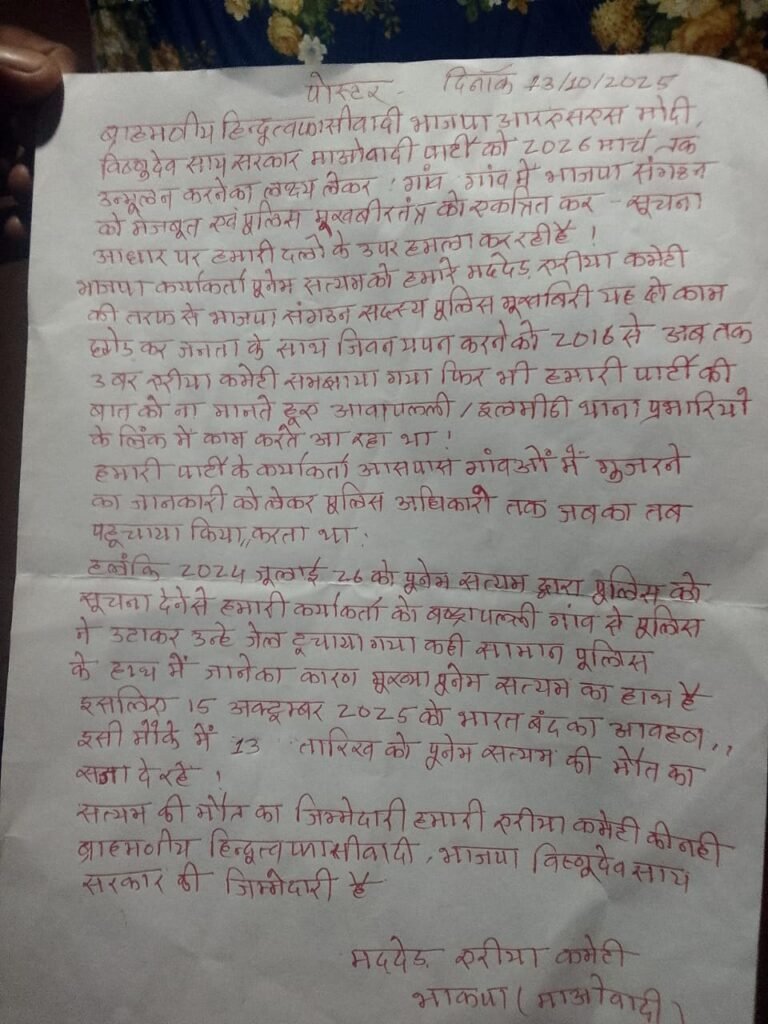 पोस्टर - दिनाँक 13/10/2025
ब्राहमणीय हिन्दुत्वफासीवादी भाजपा आरएसएस मोदी,
विष्णुदेव साय सरकार माओवादी पार्टी को 2026 मार्च तक
उन्मूलन करनेका लक्ष्य लेकर ! गांव गांव में भाजपा संगठन
को मजबूत एवं पुलिस मूखबीरतंत्र को एकत्रित कर - सूचना
आधार पर हमारी दलों के उपर हमला कर रही है !
भाजपा कार्यकर्ता पूनेम सत्यम को हमारे मददेड़ एरीया कमेटी
की तरफ से भाजपा संगठन सदस्य पुलिस मूखबिरी यह दो काम
छोड कर जनता के साथ जिवन यपन करने को 2016 से अब तक
3 बर एरीया कमेटी समझाया गया फिर भी हमारी पार्टी की
बात को ना मानते हूए आवापल्ली / इलमीडी थाना प्रभारियों
के लिंक में काम करते आ रहा था !
हमारी पार्टी के कर्याकर्ता आसपास गांवओं में गूजरने
का जानकारी को लेकर पुलिस अधिकारी तक जबका तब
पहूचाया किया,, करता था !
हलंकि 2024 जूलाई 26 को पूनेम सत्यम द्वारा पुलिस को
सूचना देने से हमारी कर्याकर्ता को गांव से पुलिस
ने उटाकर उन्हे जेल दूचाया गया कही सामान पुलिस
के हाथ में जानेका कारण पूनेम सत्यम का हाथ है
इसलिए 15 अक्टूम्बर 2025 को भारत बंद का आवहन,,
इसी मौके में 13 तारिख को पूनेम सत्यम की मौत का
सजा दे रहे !
सत्यम की मौत का जिम्मेदारी हमारी एरीया कमेटी की नही
ब्राहमणीय हिन्दुत्व फासीवादी, भाजपा विष्णूदेव साय
सरकार की जिम्मेदारी है
मददेड़ एरीया कमेटी
भाकपा (माओवादी)